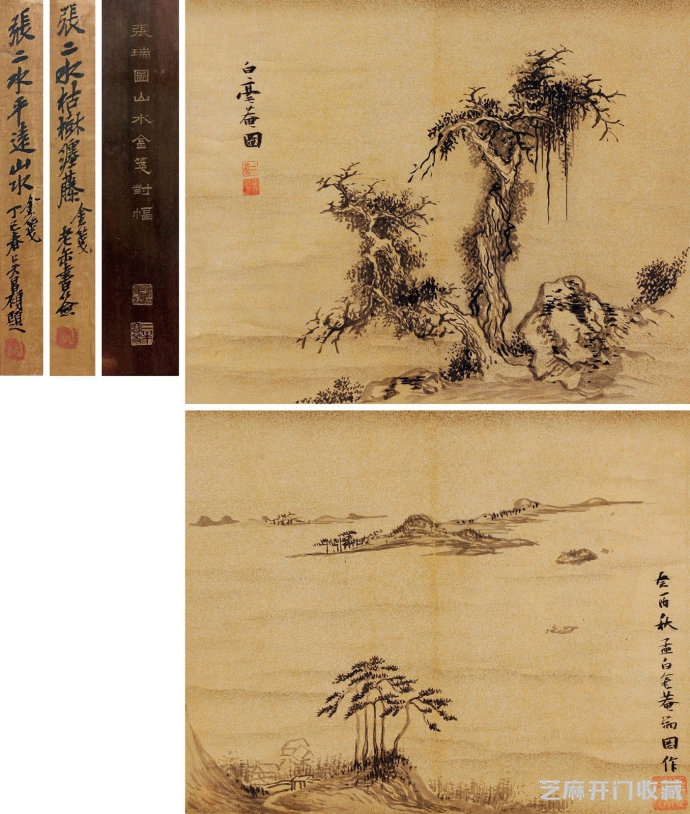 張二水平遠山水
金箋
丁巳春吳昌碩題
張二水枯樹纏藤
金箋
老缶書
張瑞圖山水金箋對幅
白毫菴圖
癸酉秋孟白毫菴瑞圖作
芝麻开门收藏